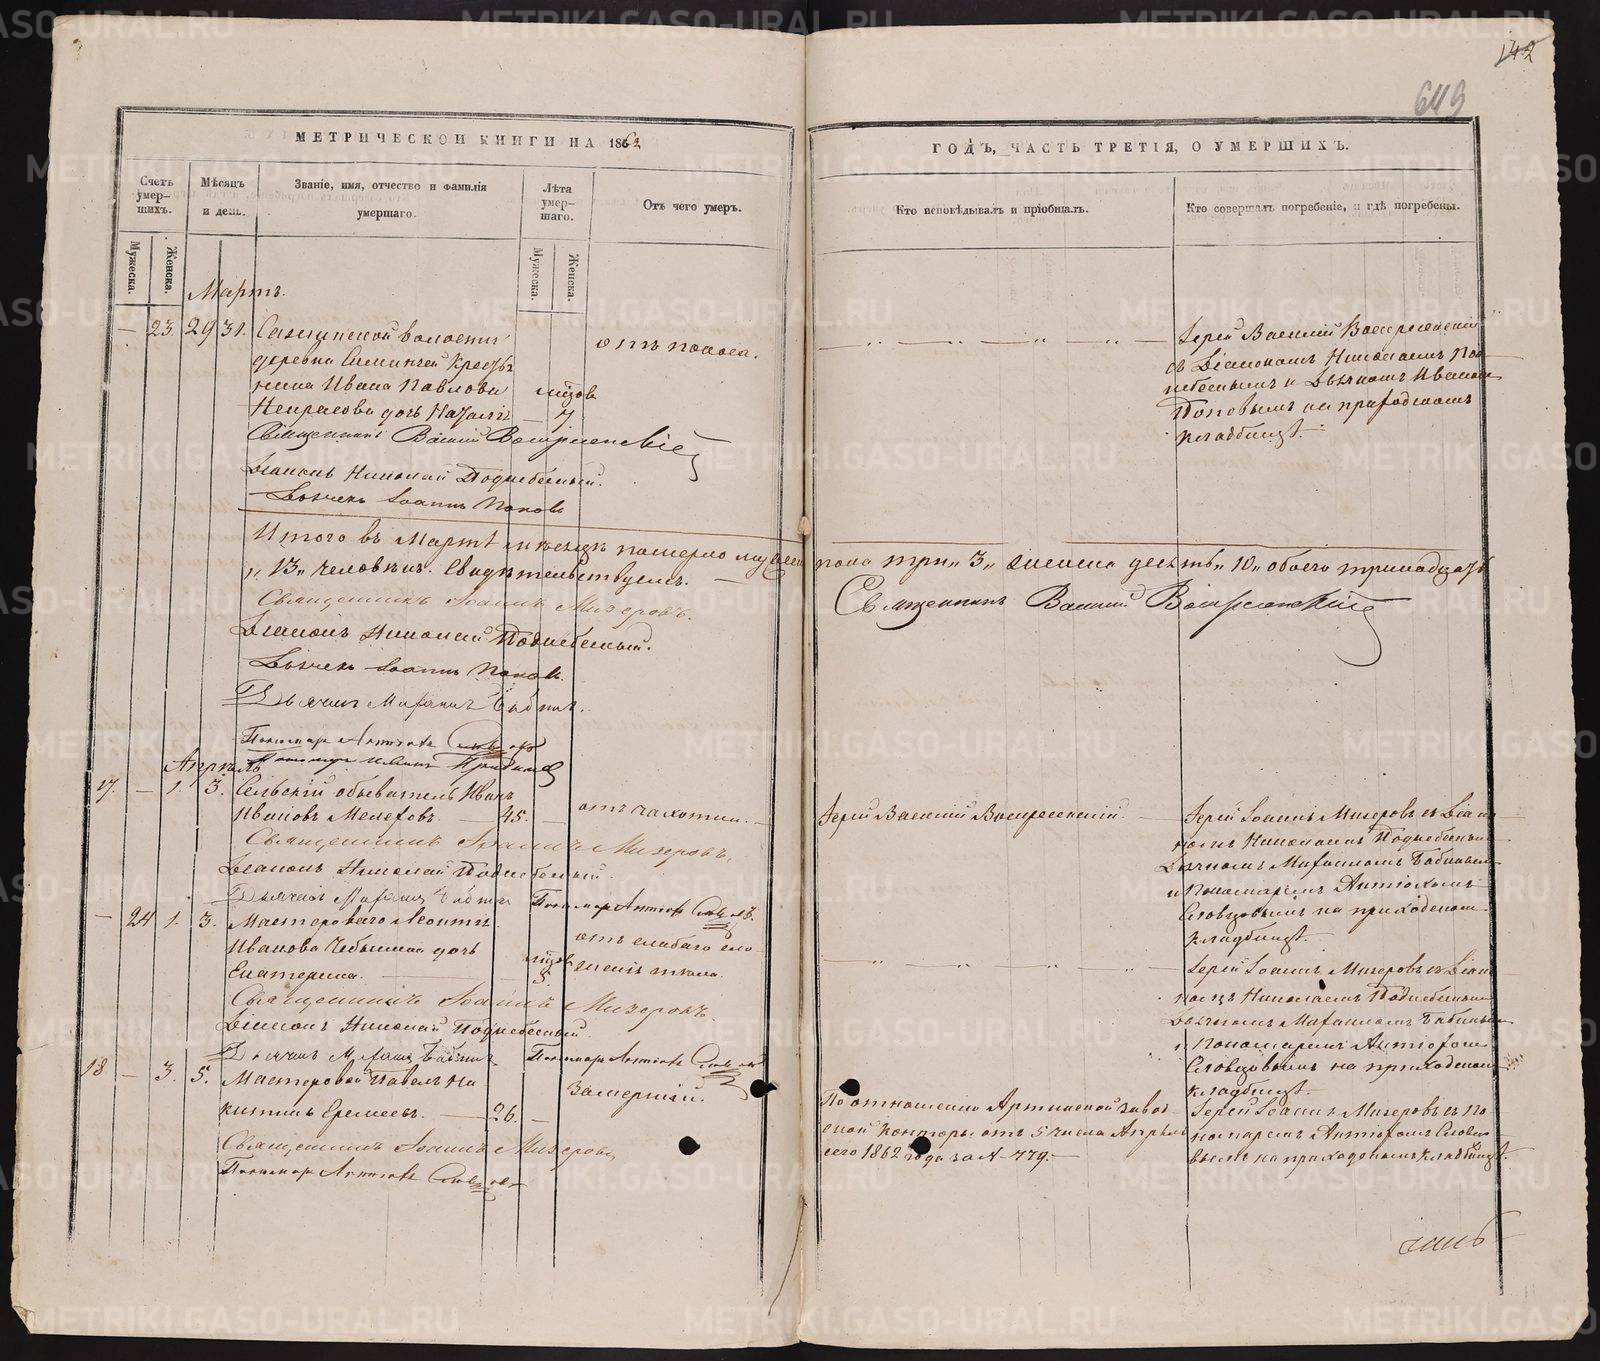 142
649
МЕТРИЧЕСКОЙ КНИГИ НА 1862
ГОДЪ, ЧАСТЬ ТРЕТІЯ, О УМЕРШИХЪ.
Счетъ умер-
шихъ.
Мѣсяцъ
и день.
Званіе, имя, отчество и фамилія
умершаго.
Лѣта
умер-
шаго.
Отъ чего умеръ.
Кто исповѣдывалъ и пріобщалъ.
Кто совершалъ погребеніе, и гдѣ погребены.
Мужеска.
Женска.
Мужеска.
Женска.
Мартъ.
— 23. 29 31.
деревни
нина Ивана Павлова
Некрасова дочь
7
отъ поноса.
Священникъ Василій Воскресенскій
Діаконъ Николай Поднебесный.
Дьячекъ Іоаннъ Поповъ
Іерей Василій Воскресенскій
съ Діакономъ Николаемъ Под-
небеснымъ и Дьячкомъ Иваномъ
Поповымъ на приходскомъ
кладбищѣ.
Итого въ Мартѣ мѣсяцѣ померло мужеска пола три „3„ женска десять „10„ обоего тринадцать
„13„ человѣкъ. Свидѣтельствуемъ.
Священникъ Іоаннъ Мизеровъ.
Священникъ Василій Воскресенскій
Діаконъ Николай Поднебесный.
Дьячекъ Іоаннъ Поповъ.
Дьячекъ
Пономарь
Апрѣль
17. — 1. 3. Сельскій обыватель Иванъ
Ивановъ Мелеховъ. — 45. —
отъ чахотки. —
Іерей Василій Воскресенскій. —
Іерей Іоаннъ Мизеровъ съ Діако-
номъ Николаемъ Поднебеснымъ
Дьячкомъ
и Пономаремъ Антіохомъ
Словцовымъ на приходскомъ
кладбищѣ.
Священникъ Іоаннъ Мизеровъ,
Діаконъ Николай Поднебесный.
— 24 1. 3. Мастероваго Леонтія
Иванова дочь
Екатерина.
5.
отъ слабаго сло-
женія тѣла.
Іерей Іоаннъ Мизеровъ съ Діако-
номъ Николаемъ Поднебеснымъ
Дьячкомъ
и Пономаремъ Антіохомъ
Словцовымъ на приходскомъ
кладбищѣ.
Священникъ Іоаннъ Мизеровъ.
Діаконъ Николай Поднебесный.
18 — 3. 5. Мастеровой Павелъ Ни-
китинъ Еремеевъ. — 26. —
Замерзшій.
По отношенію Артинской завод-
ской конторы отъ 5 числа Апрѣля
сего 1862 года за № 779. —
Іерей Іоаннъ Мизеровъ съ По-
номаремъ Антіохомъ Словцо-
вымъ на приходскомъ кладбищѣ.
Священникъ Іоаннъ Мизеровъ
Пономарь
METRIKI.GASO-URAL.RU